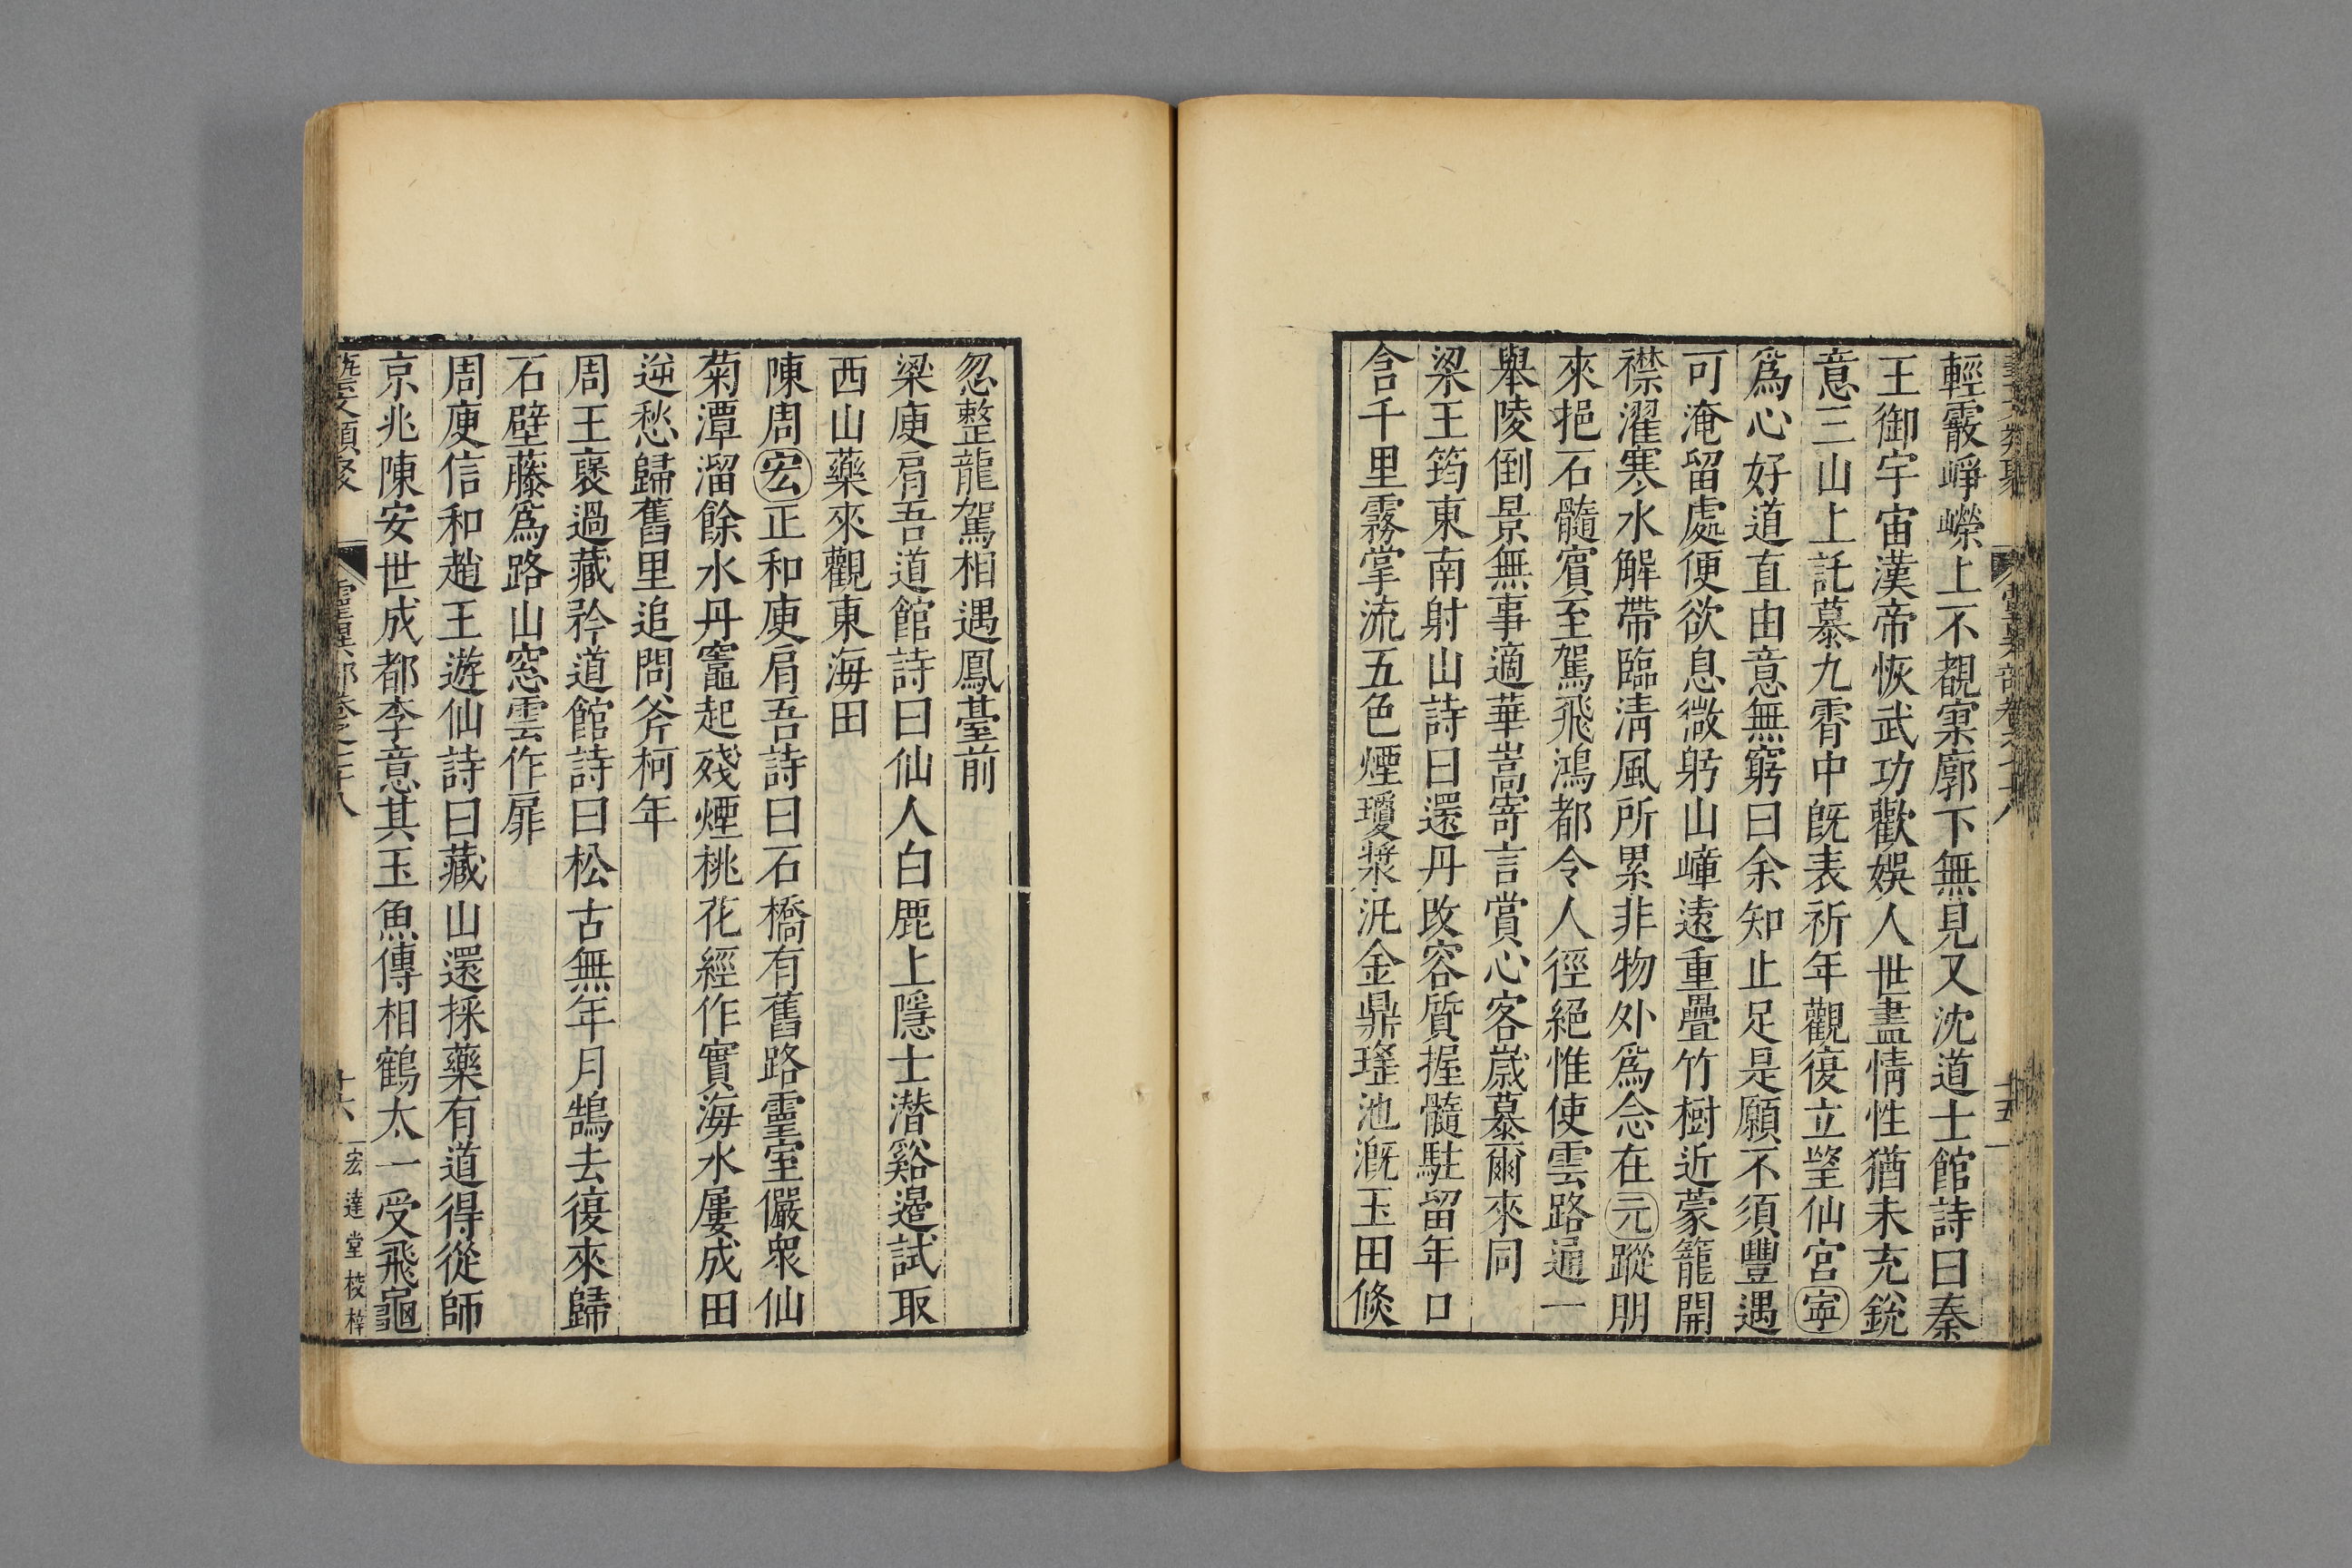 輕霞崢嶸上不覩寥廓下無見又沈道士館詩曰秦
王御宇宙漢帝恢武功歡娛人世盡情性猶未充銳
意三山上託慕九霄中旣表祈年觀復立望仙宮寧
爲心好道直由意無窮曰余知止足是願不須豐遇
可淹留處便欲息微躬山嶂遠重疊竹樹近蒙籠開
襟濯寒水解帶臨淸風所累非物外爲念在元蹤朋
來挹石髓賓至駕飛鴻都令人徑絕惟使雲路通一
舉陵倒景無事適華嵩寄言賞心客歲暮爾來同
梁王筠東南射山詩曰還丹改容質握髓駐留年口
含千里霧掌流五色煙瓊漿泛金鼎瑤池漑玉田倐
忽整龍駕相遇鳳臺前
梁庾肩吾道館詩曰仙人白鹿上隱士潛谿邊試取
西山藥來觀東海田
陳周宏正和庾肩吾詩曰石橋有舊路靈室儼衆仙
菊潭溜餘水丹竈起殘煙桃花經作實海水屢成田
逆愁歸舊里追問斧柯年
周王襃過藏矜道館詩曰松古無年月鵠去復來歸
石壁藤爲路山窓雲作扉
周庾信和趙王遊仙詩曰藏山還採藥有道得從師
京兆陳安世成都李意其玉魚傳相鶴太一受飛龜
藝文類聚 靈異部卷之七十八 十六 宏達堂校梓